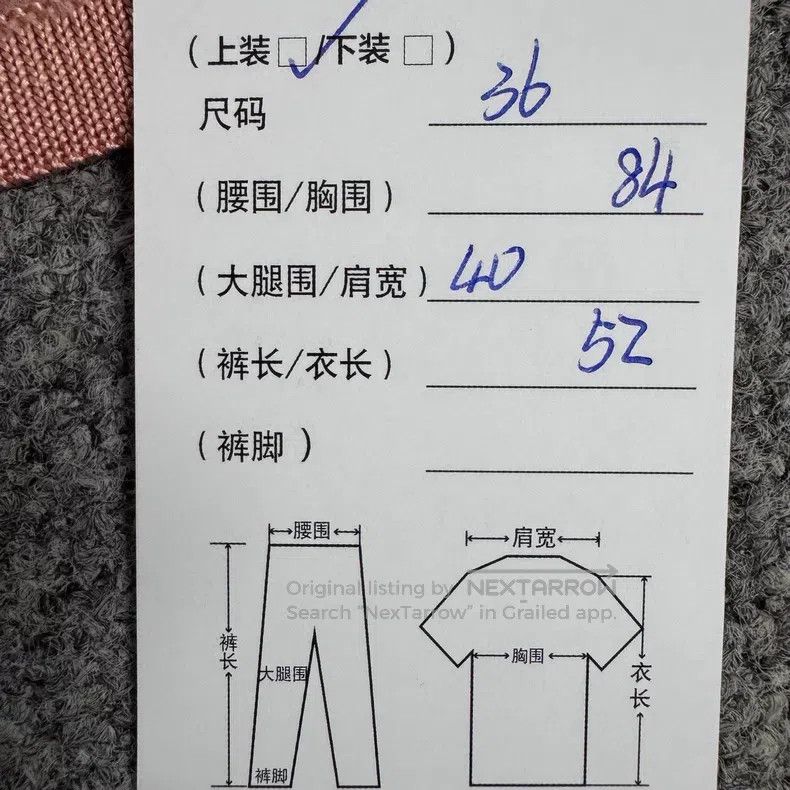 (上装□✓/下装□)
尺码 36
(腰围/胸围) 84
(大腿围/肩宽) 40
(裤长/衣长) 52
(裤脚)
腰围
肩宽
Original listing by NEXTARROW
Search "NexTarrow" in Grailed app.
裤长
大腿围
胸围
衣长
裤脚